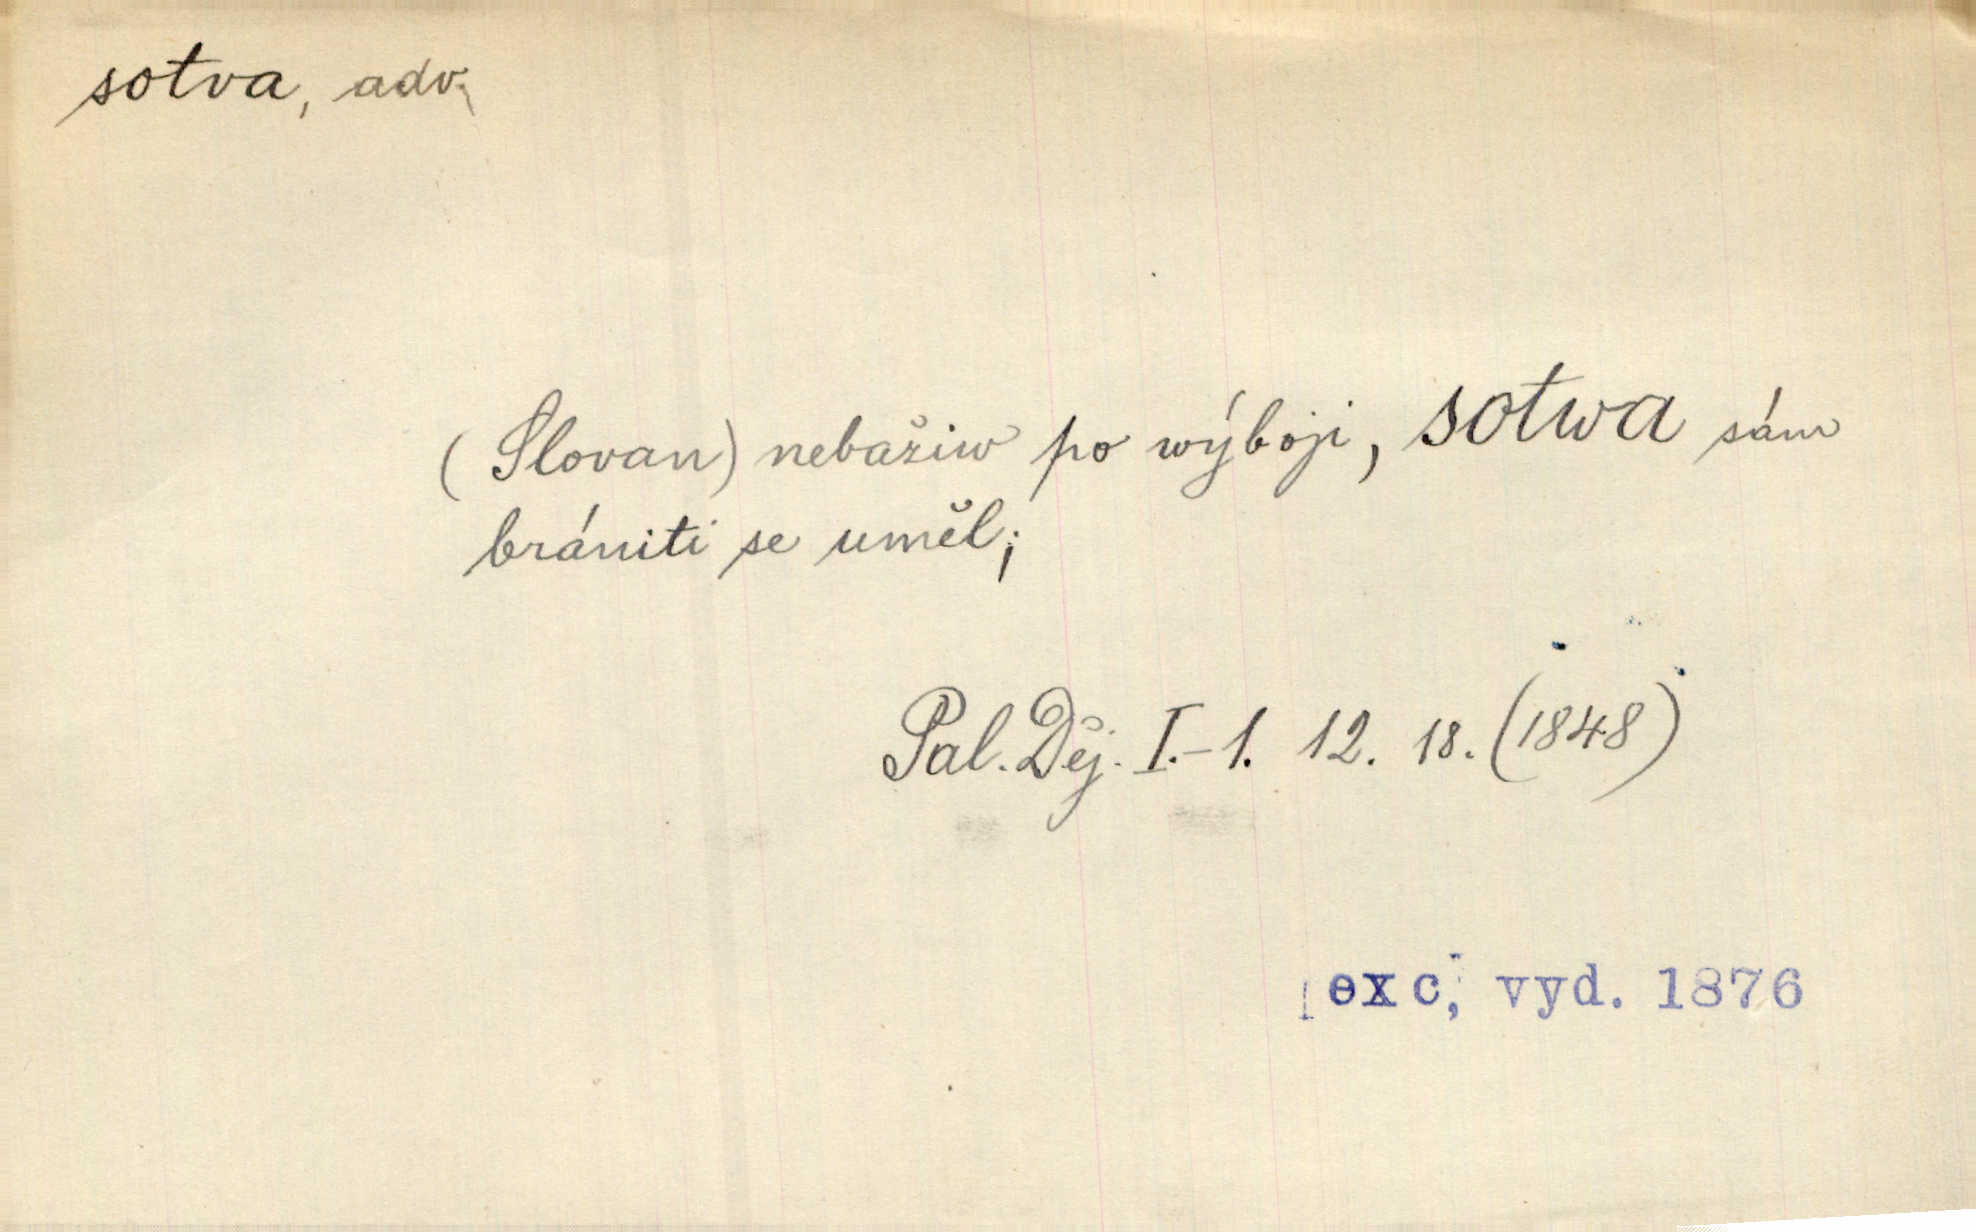 sotva, adv.
(Slovan) nebaživ po wýboji, sotwa sám
brániti se uměl;
Pal. Děj. I.-1. 12. 18. (1848)
exc, vyd. 1876